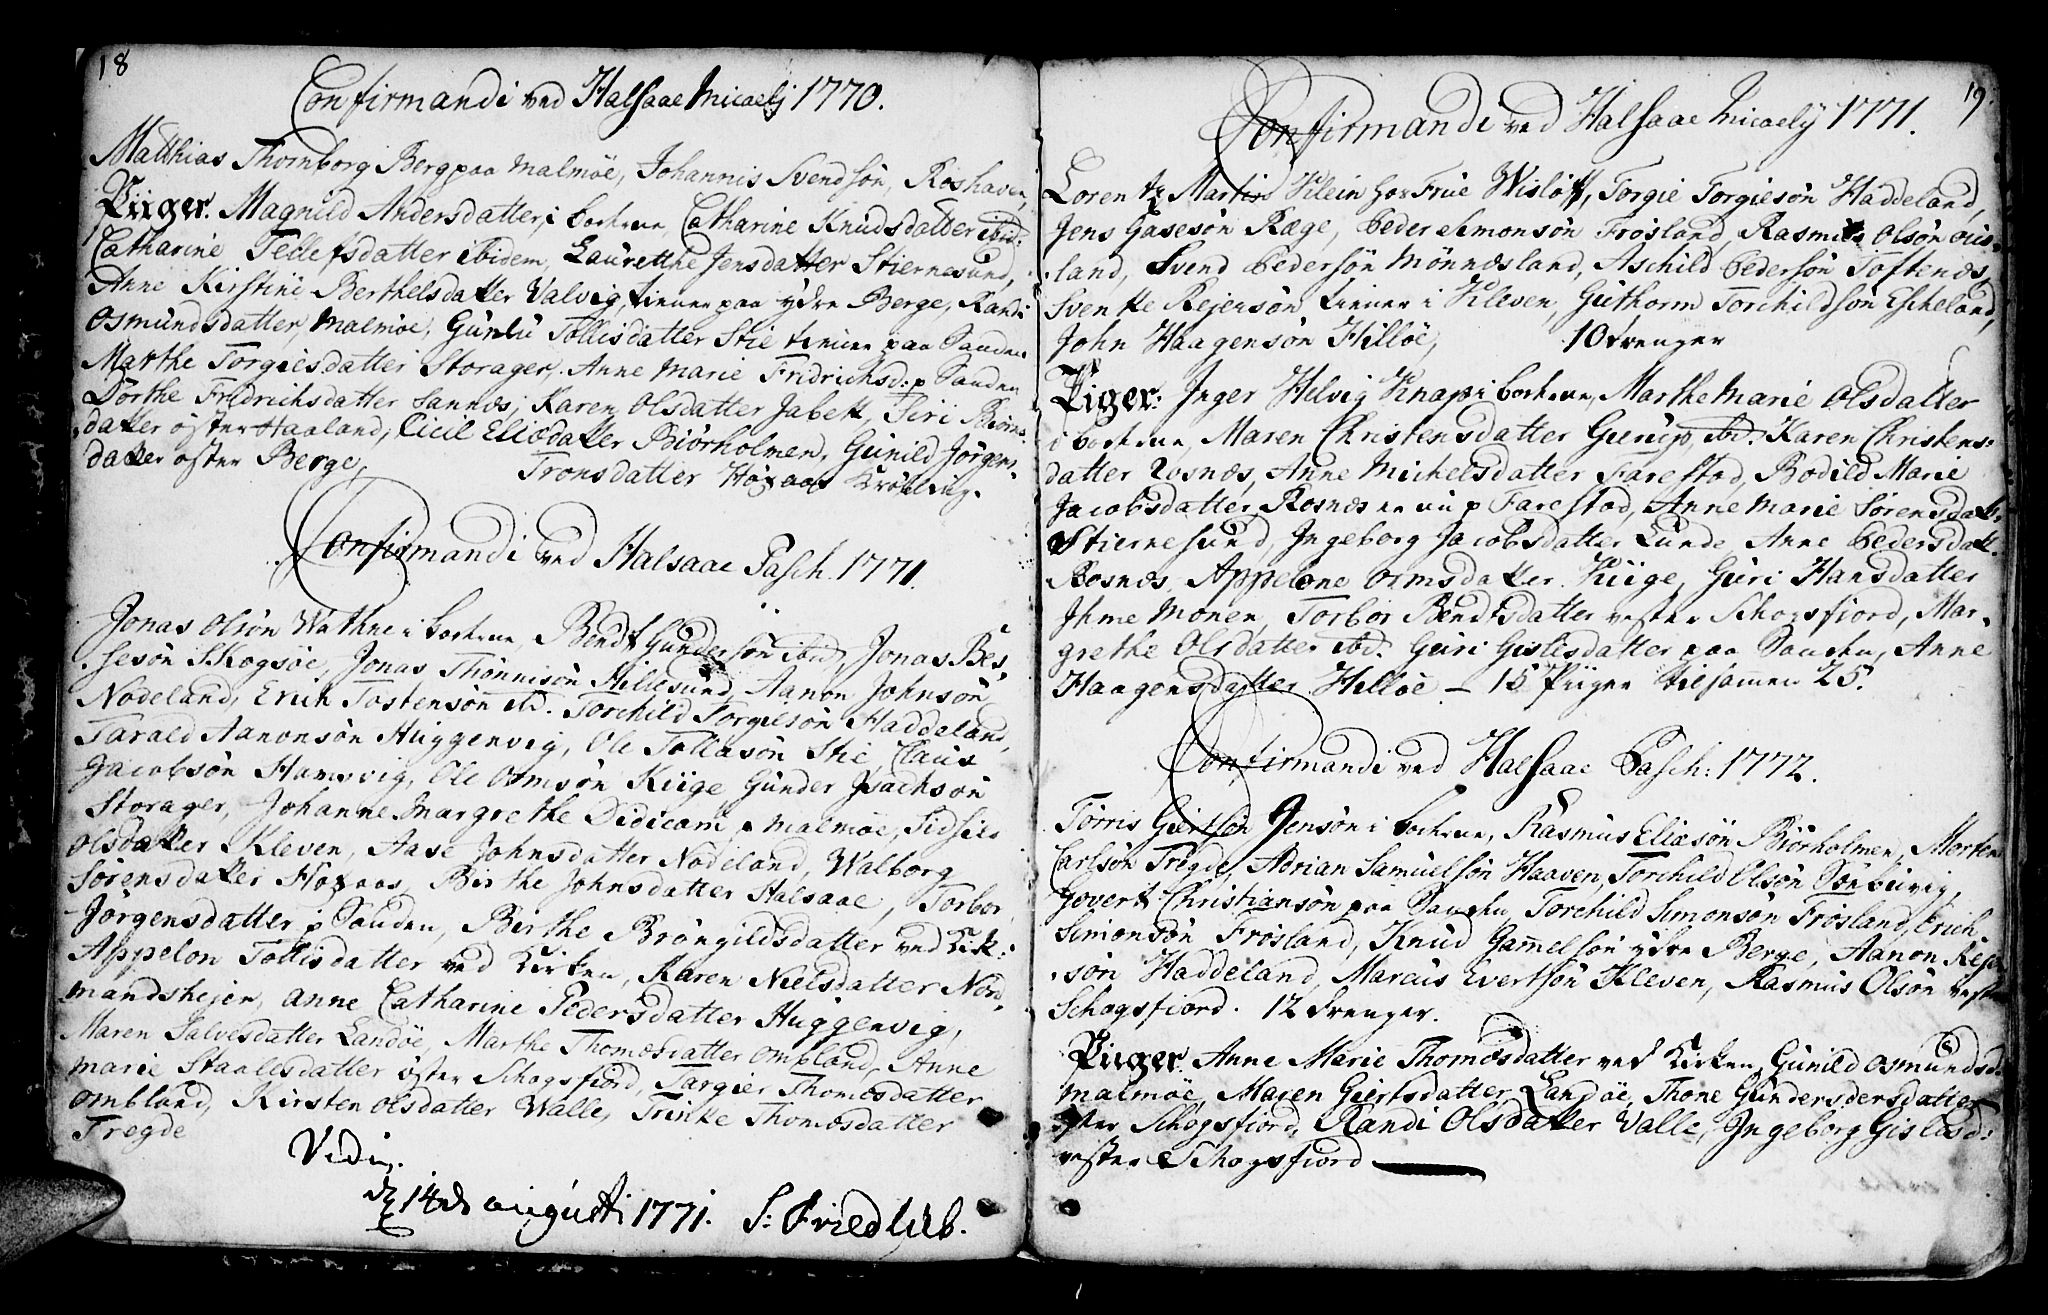 18
Confirmandi ved Halsaae Micaely 1770.
Matthias Thornborg Berg paa Malmöe, Johannis Svendsön, Roshaven,
Piiger. Magnild Andersdatter, i boehnn, Catharine Knudsdatter ibid:
Catharine Tellefsdatter ibidem, Lauretthe Jensdatter Stiernesund,
Anne Kirstine Berthelsdatter Valvig, tiener paa ydre Berge, Randi
Osmundsdatter, Malmöe, Gunlu Tollisdatter Stie tiener paa Sanden
Marthe Torgiesdatter Storager, Anne Marie Fridrichsd: p Sanden
Dorthe Fridrichsdatter Sannæs, Karen Olsdatter Jabek, Siri Biörns
datter öster Haaland, Cicil Eliædatter Biörholmen, Gunild Jörgens
datter öster Berge,
Tronsdatter Höyaas Kröbling.
Confirmandi ved Halsaae Pasch. 1771.
Jonas Olsön Wathne i, Bendt Gundersön ibid, Jonas Bes
sesön Skogsöe, Jonas Thönnisön Hillesund, Aanon Johnsön
Nodeland, Erich Tostensön ibd. Torchild Torgiesön Haddeland,
Tarald Aanonsön Huggenvig, Ole Tollasön Stie, Claus
Jacobsön Hamsvig, Ole Ormsön Kiige Gunder Jsachsön
Storager, Johanne Margrethe Didicam, p Malmöe, Sidsies
Olsdatter Kleven, Aase Johnsdatter Nodeland, Walborg
Sörensdatter Höyaas, Birthe Johnsdatter Halsaae, Torbor
Jörgensdatter p Sanden, Birthe Bröngildsdatter ved Kirk:
Appelon Tollisdatter ved Kirken, Karen Nielsdatter Nord
mandshejen, Anne Catharine Pedersdatter Huggenvig,
Maren Salvesdatter Landöe, Marthe Thomæsdatter Ombland, Anne
Marie Staalesdatter öster Schogsfiord, Targier Thomæsdatter
Ombland, Kirsten Olsdatter Walle, Trinke Thomæsdatter
Tregde
Vidi.
d 14de augusti 1771. S. Friedlieb.
19.
Confirmandi ved Halsaae Micaely 1771.
Lorentz Martin Klein hos Frue Wislöff, Torgie Torgiesön Haddeland,
Jens Gasesön Ræge, Peder Simonsön Frösland, Rasmus Olsön
land, Svend Pedersön Mönnæsland, Aschild Pedersön Toftenæs,
Svenke Rejersön tiener i Kleven, Guthorm Torchildsön Escheland,
John Haagensön Hillöe, 10 Drenger
Piiger: Inger Helvig Knap i, Marthe Marie Olsdatter
i, Maren Christensdatter Gierup, ibd. Karen Christens:
datter Rosnæs, Anne Michelsdatter Farestad, Bodild Marie
Jacobsdatter Rosnæs nu p Farestad, Anne Marie Sörensdatt:
Stiernesund, Ingeborg Jacobsdatter Lunde, Anne Pedersdatt.
Rosnæs, Appelone Ormsdatter Kiige, Guri Hansdatter
Jhme Monen, Torbor Bendtsdatter vester Schogsfiord, Mar-
grethe Olsdatter ibd. Guri Gislesdatter paa Sanden, Anne
Haagensdatter Hillöe – 15 Piiger tilsamen 25.
Confirmandi ved Halsaae Pasch: 1772.
Törris Giertsön Jensön i, Rasmus Eliæsön Biörholmen, Morten
Carlsön Tregde, Adrian Samuelsön Haaven, Torchild Olsön Sönbuvig,
Govert Christiansön paa Sanden, Torchild Simonsön Frösland, Erich
Simonsön Frösland, Knud Gammelsön ydre Berge, Aanon Rejer
sön Haddeland, Marcus Evertsön Kleven, Rasmus Olsön vester
Schogsfiord. 12 Drenger.
Piiger. Anne Marie Thomæsdatter ved Kirken, Gunild Osmundsd
Malmöe, Maren Giertsdatter Landöe, Thone Gundersdersdatter
öster Schogsfiord, Randi Olsdatter Valle, Ingeborg Gislesd:
vester Schogsfiord